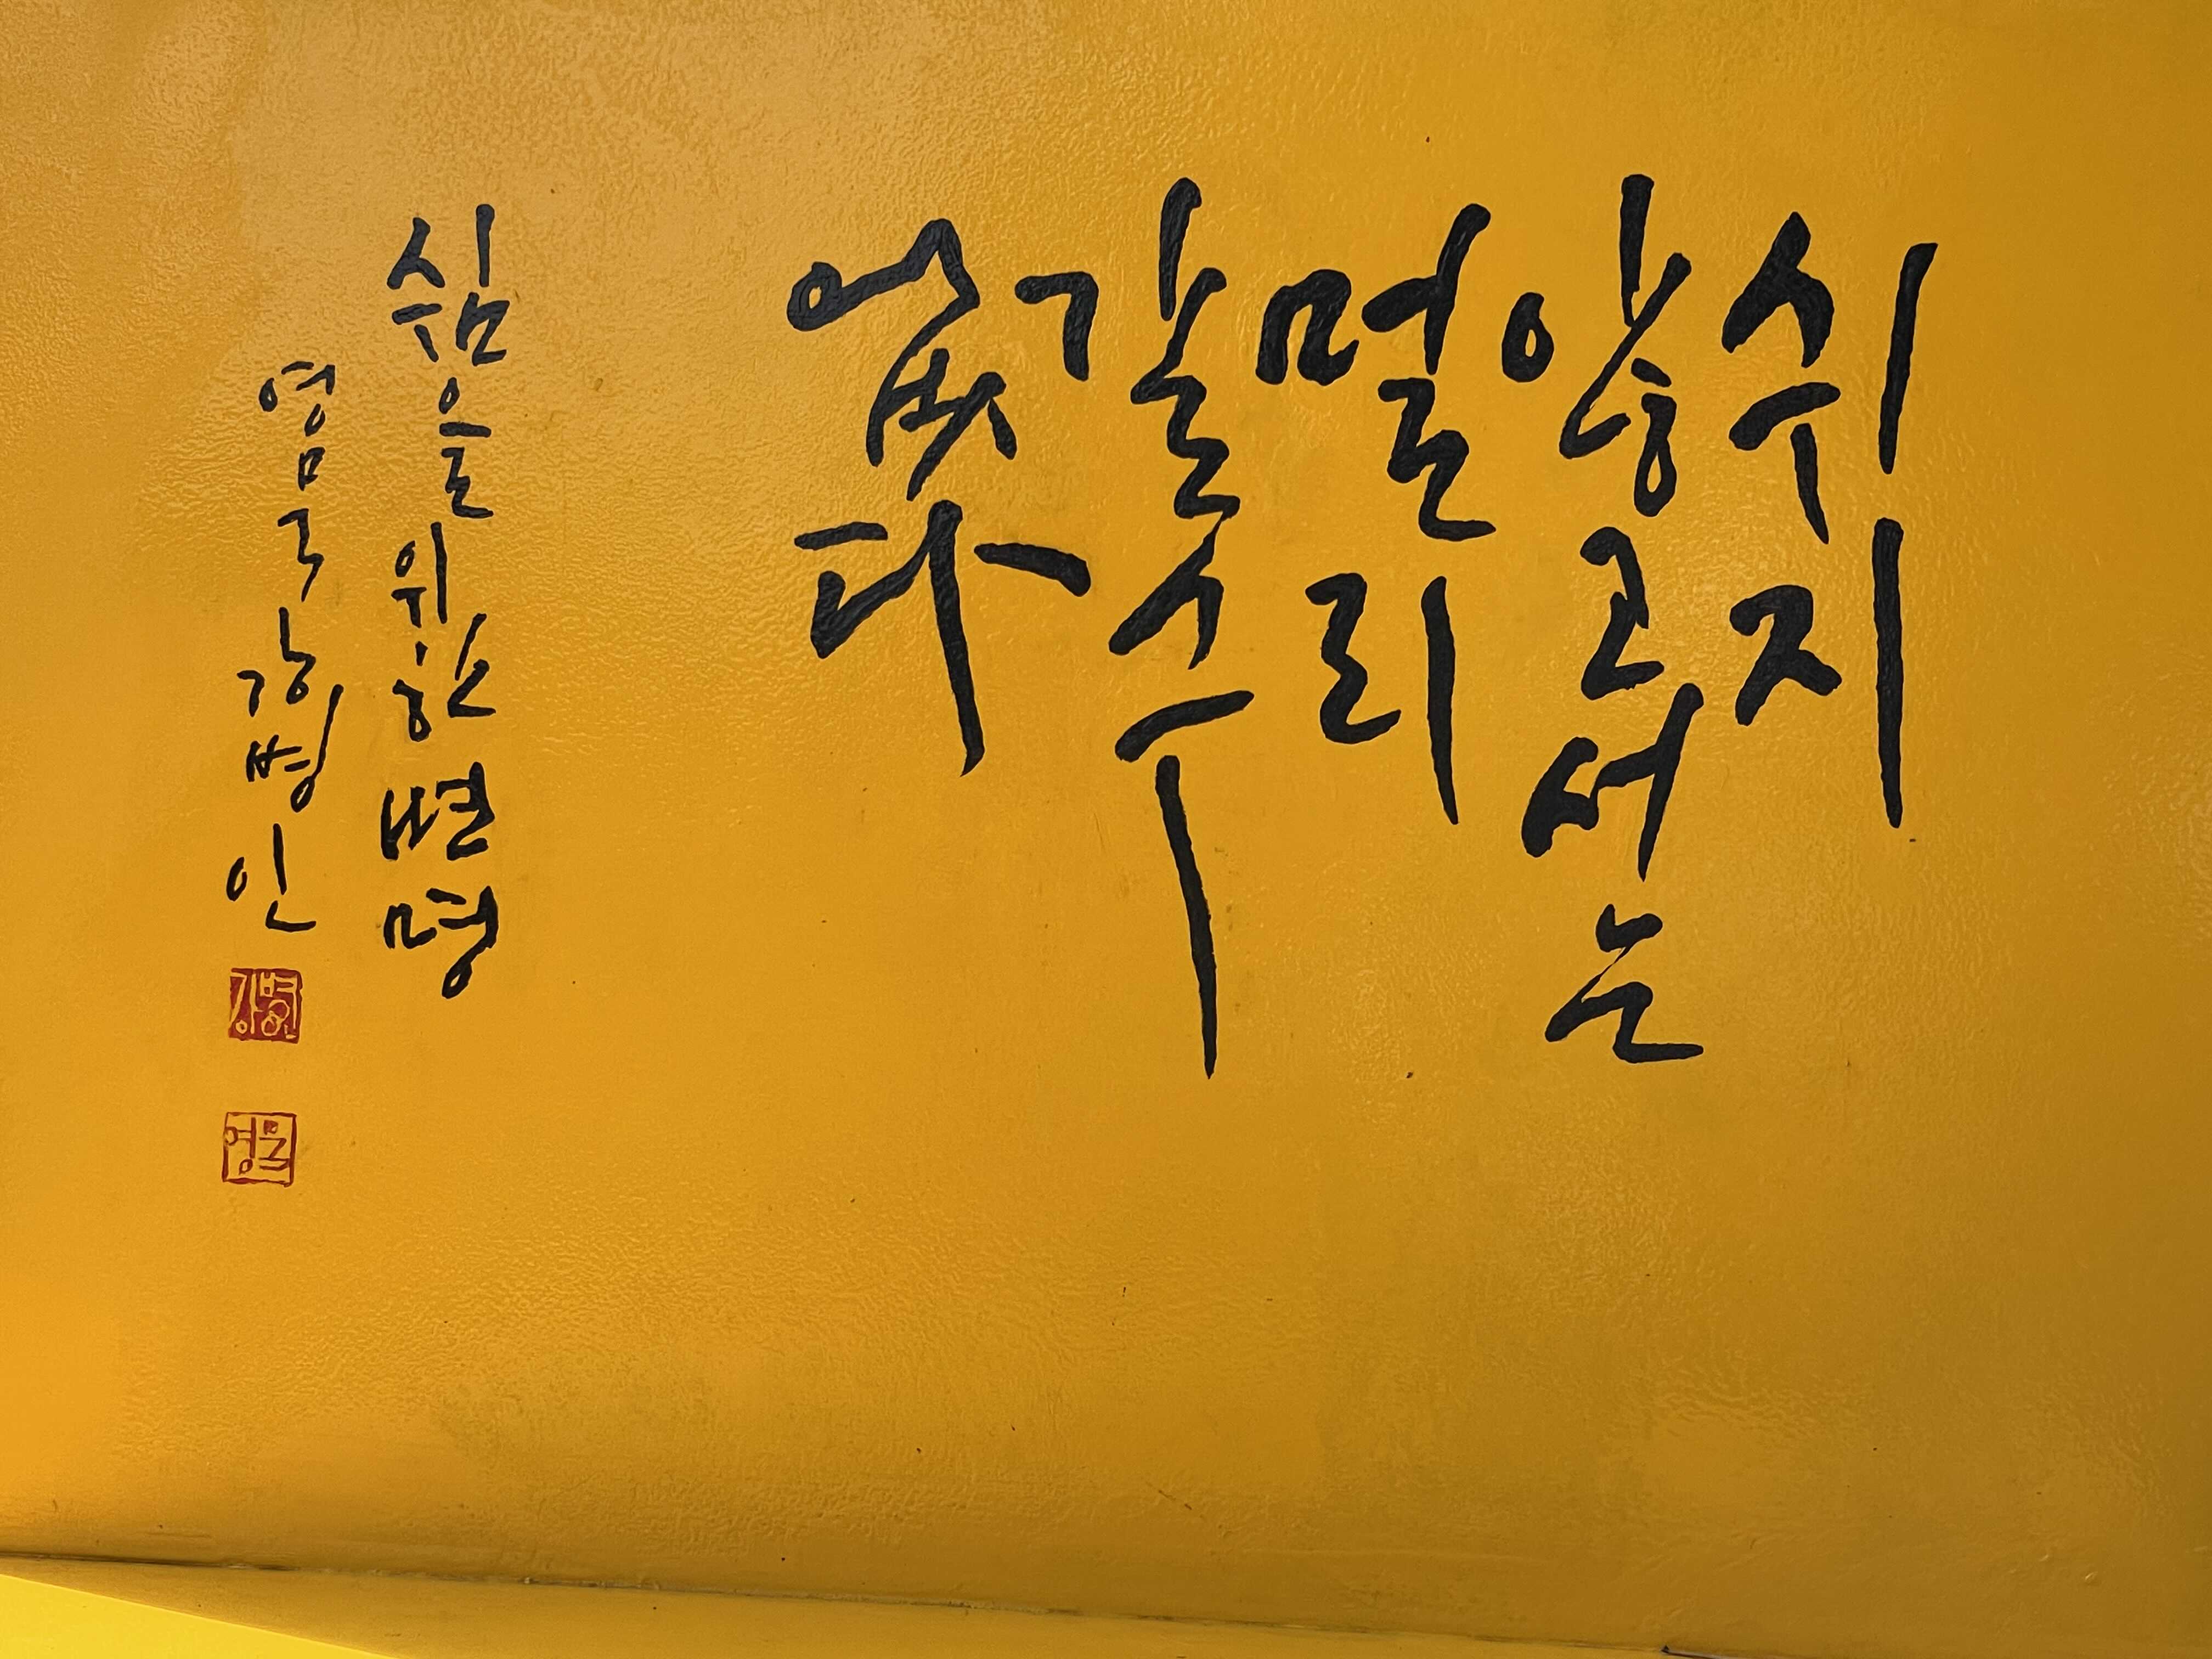 쉬지
않고서는
멀리
갈 수
없다
쉼을 위한 변명
영묵 강병인
강병인
영묵